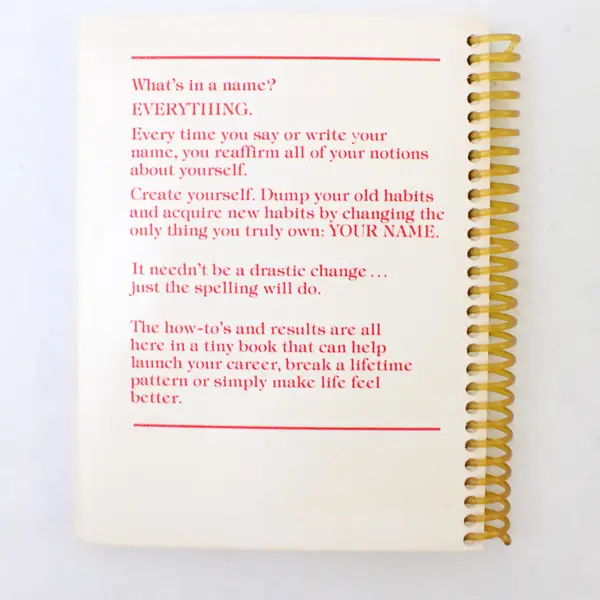 What's in a name?
EVERYTHING.
Every time you say or write your
name, you reaffirm all of your notions
about yourself.
Create yourself. Dump your old habits
and acquire new habits by changing the
only thing you truly own: YOUR NAME.
It needn't be a drastic change...
just the spelling will do.
The how-to's and results are all
here in a tiny book that can help
launch your career, break a lifetime
pattern or simply make life feel
better.